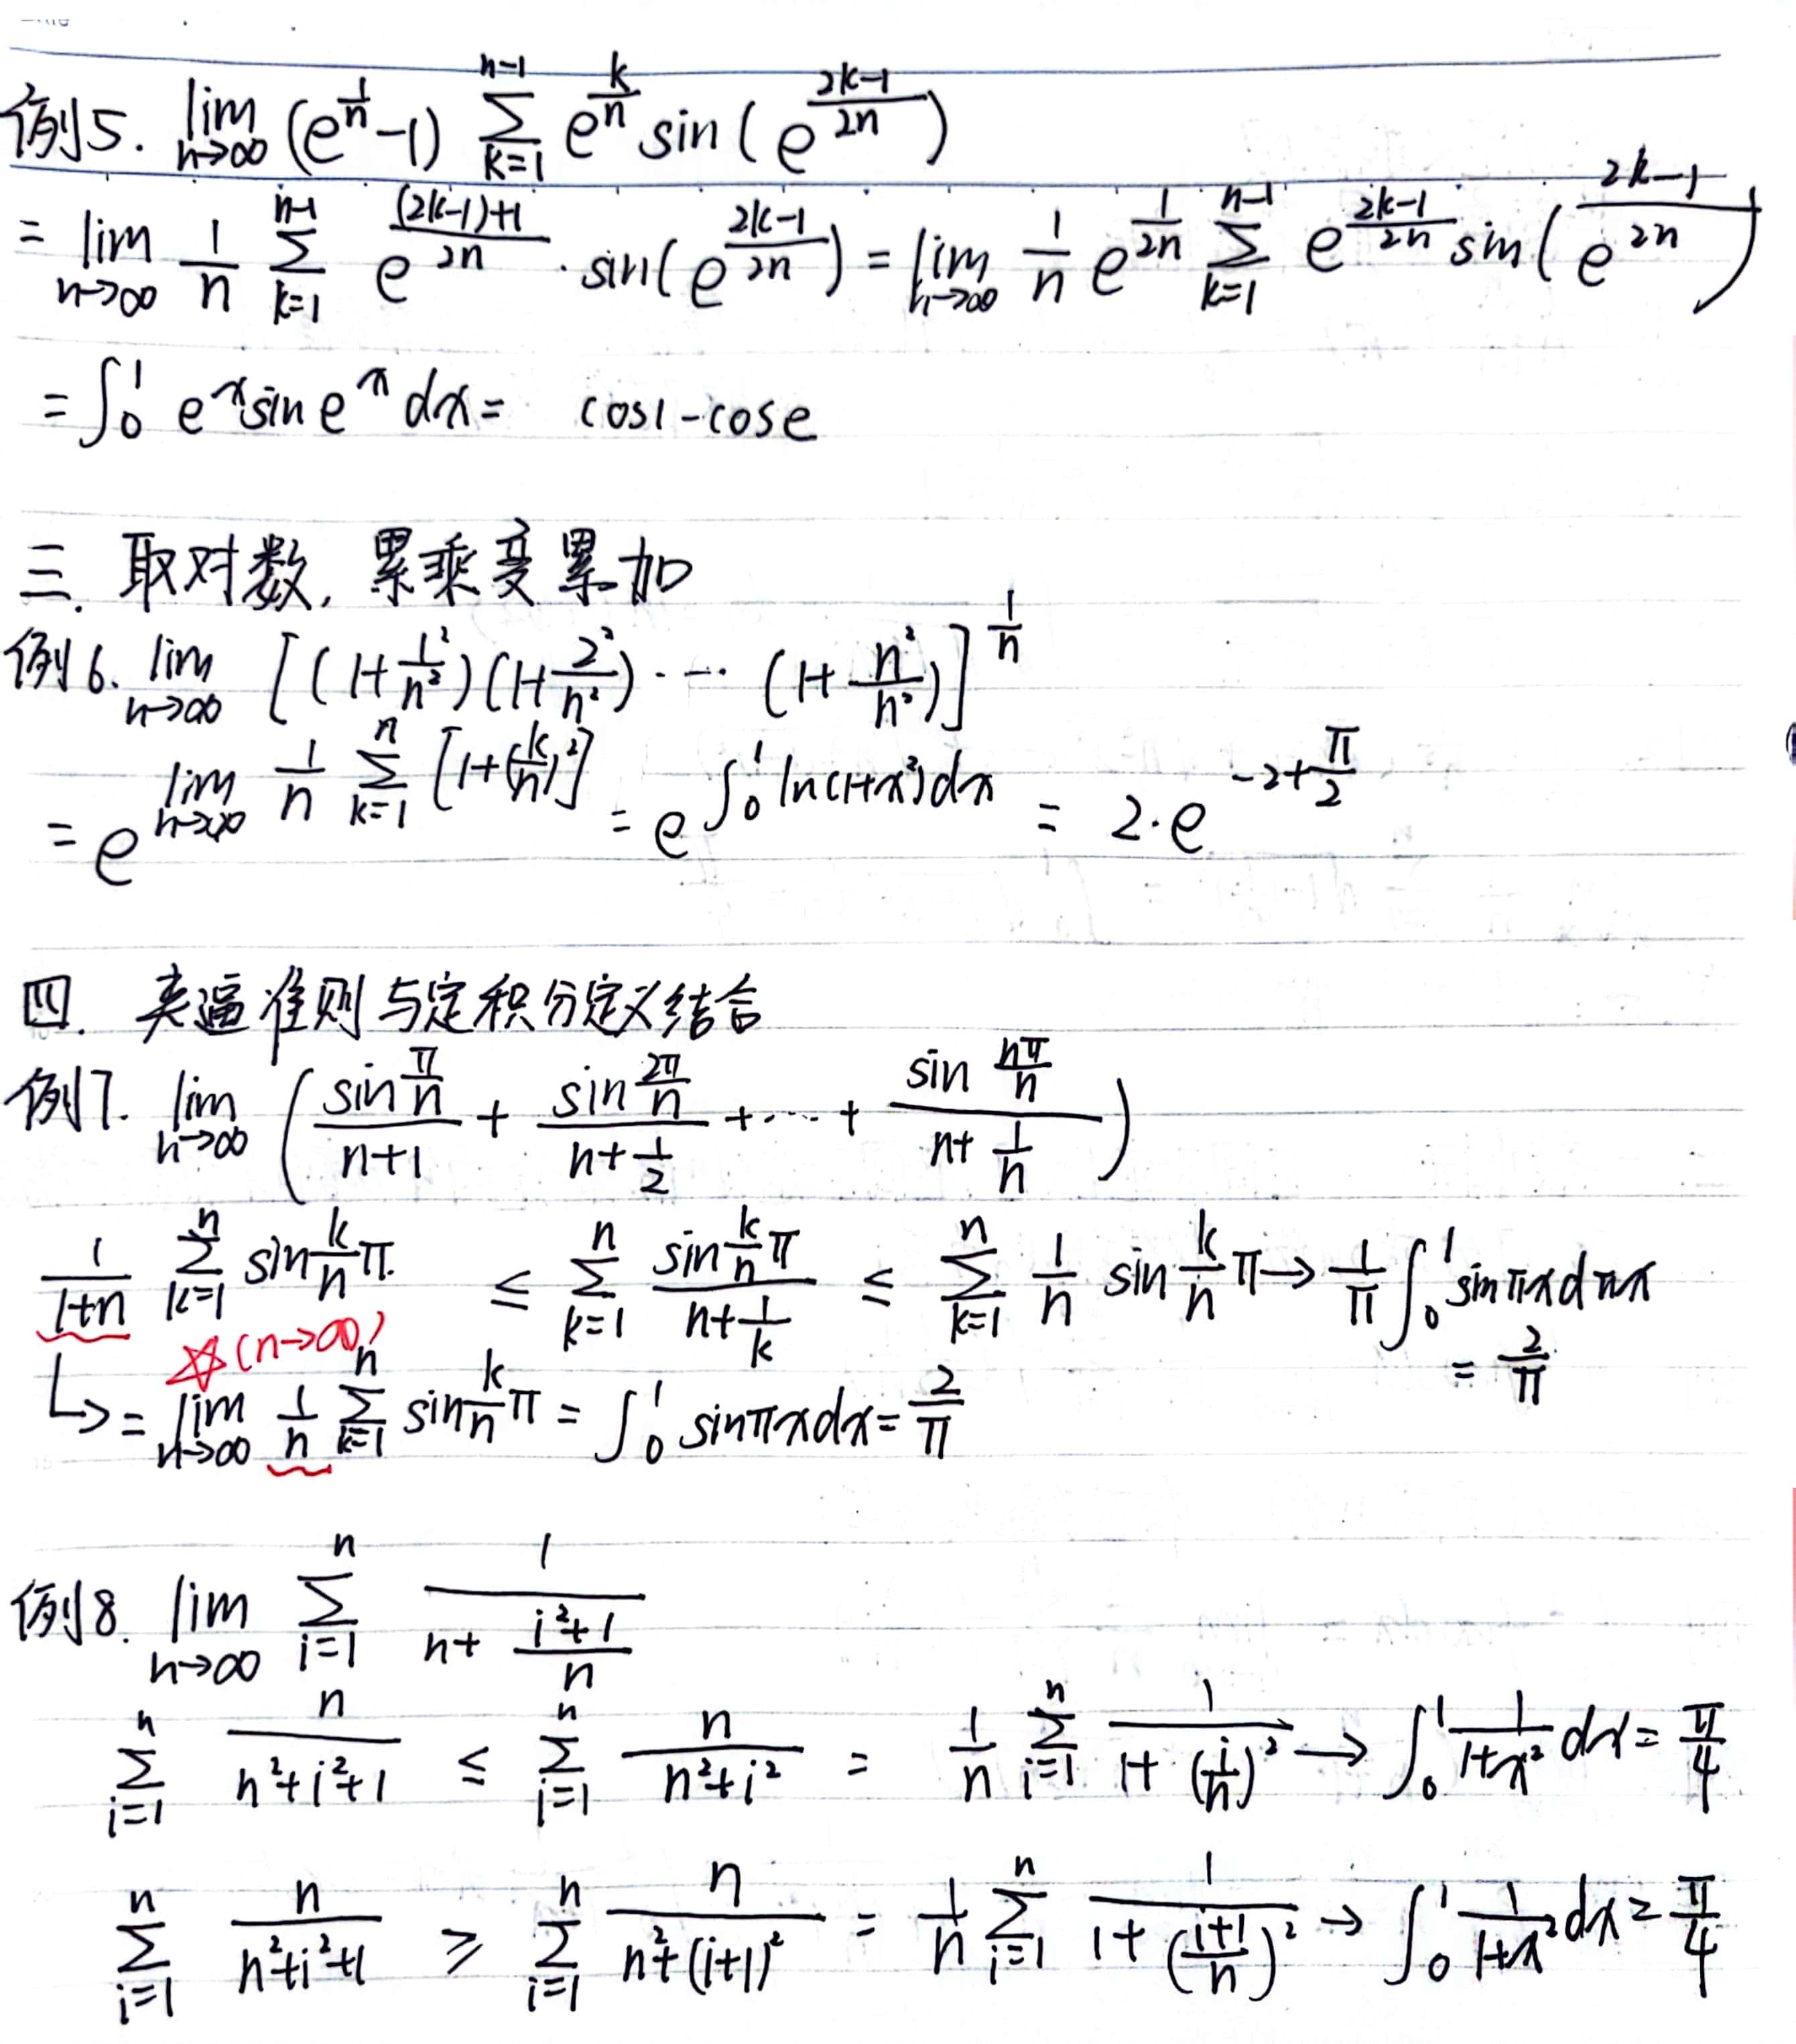 例5. lim_{n→∞} (e^{1/n}-1) ∑_{k=1}^{n-1} e^{k/n} sin(e^{(2k-1)/2n})
= lim_{n→∞} 1/n ∑_{k=1}^{n-1} e^{((2k-1)+1)/2n} · sin(e^{(2k-1)/2n}) = lim_{n→∞} 1/n e^{1/2n} ∑_{k=1}^{n-1} e^{(2k-1)/2n} sin(e^{(2k-1)/2n})
= ∫_0^1 e^x sin e^x dx = cos1-cose
三. 取对数, 累乘变累加
例6. lim_{n→∞} [(1+1²/n²)(1+2²/n²)·…(1+n²/n²)]^{1/n}
= e^{lim_{n→∞} 1/n ∑_{k=1}^{n} [1+(k/n)²]} = e^{∫_0^1 ln(1+x²)dx} = 2·e^{-2+π/2}
四. 夹逼准则与定积分定义结合
例7. lim_{n→∞} (sin π/n / (n+1) + sin 2π/n / (n+1/2) +…+ sin nπ/n / (n+1/n))
1/(1+n) ∑_{k=1}^{n} sin k/n π. ≤ ∑_{k=1}^{n} sin k/n π / (n+1/k) ≤ ∑_{k=1}^{n} 1/n sin k/n π → 1/π ∫_0^1 sinπx dπx
= 2/π
☆(n→∞)
↳ = lim_{n→∞} 1/n ∑_{k=1}^{n} sin k/n π = ∫_0^1 sinπx dx = 2/π
例8. lim_{n→∞} ∑_{i=1}^{n} 1/(n+(i²+1)/n)
∑_{i=1}^{n} n/(n²+i²+1) ≤ ∑_{i=1}^{n} n/(n²+i²) = 1/n ∑_{i=1}^{n} 1/(1+(i/n)²) → ∫_0^1 1/(1+x²) dx = π/4
∑_{i=1}^{n} n/(n²+i²+1) ≥ ∑_{i=1}^{n} n/(n²+(i+1)²) = 1/n ∑_{i=1}^{n} 1/(1+((i+1)/n)²) → ∫_0^1 1/(1+x²) dx = π/4